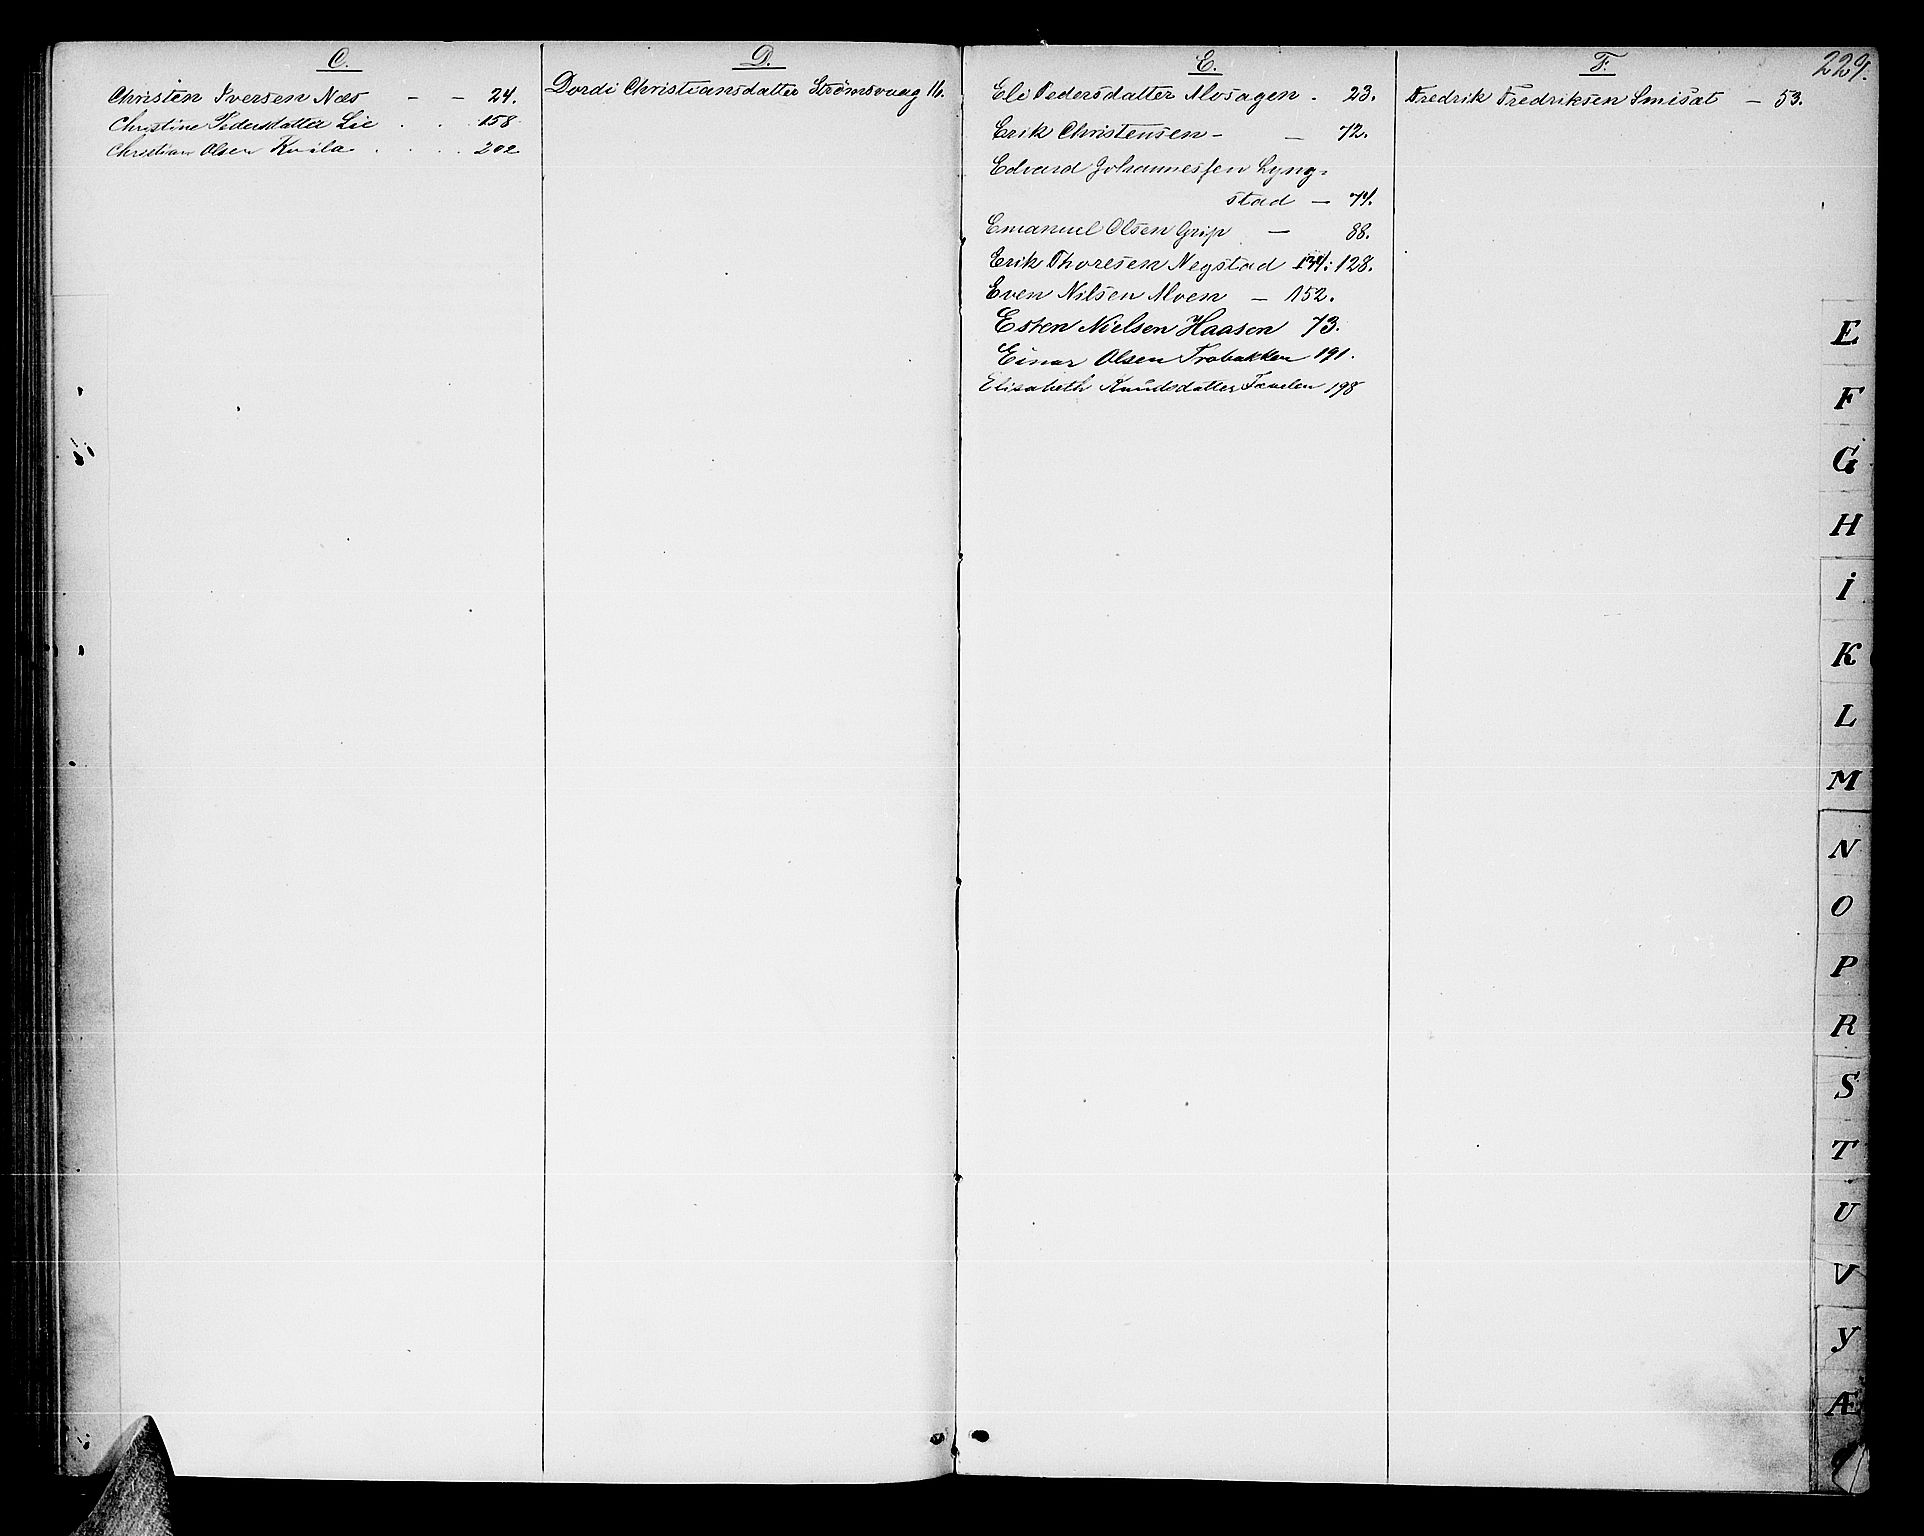 C.
Christen Iversen Næs - - 24.
Christine Pedersdatter Lie . . 158
Christian Olsen Kvila . . . . 202
D.
Dordi Christiansdatter Strømsvaag 16.
E.
Eli Pedersdatter Mosagen . 23.
Erik Christensen - - 72.
Edvard Johannessen Lyng-
stad - 74.
Emanuel Olsen Grip - 88.
Erik Thoresen Negstad 134: 128.
Even Nilsen Moen - 152.
Esten Nielsen Haasen 73.
Einar Olsen 191.
Elisabeth Knudsdatter 198
F.
Fredrik Fredriksen Smisæt - 53.
229.
E
F
G
H
I
K
L
M
N
O
P
R
S
T
U
V
Y
Æ